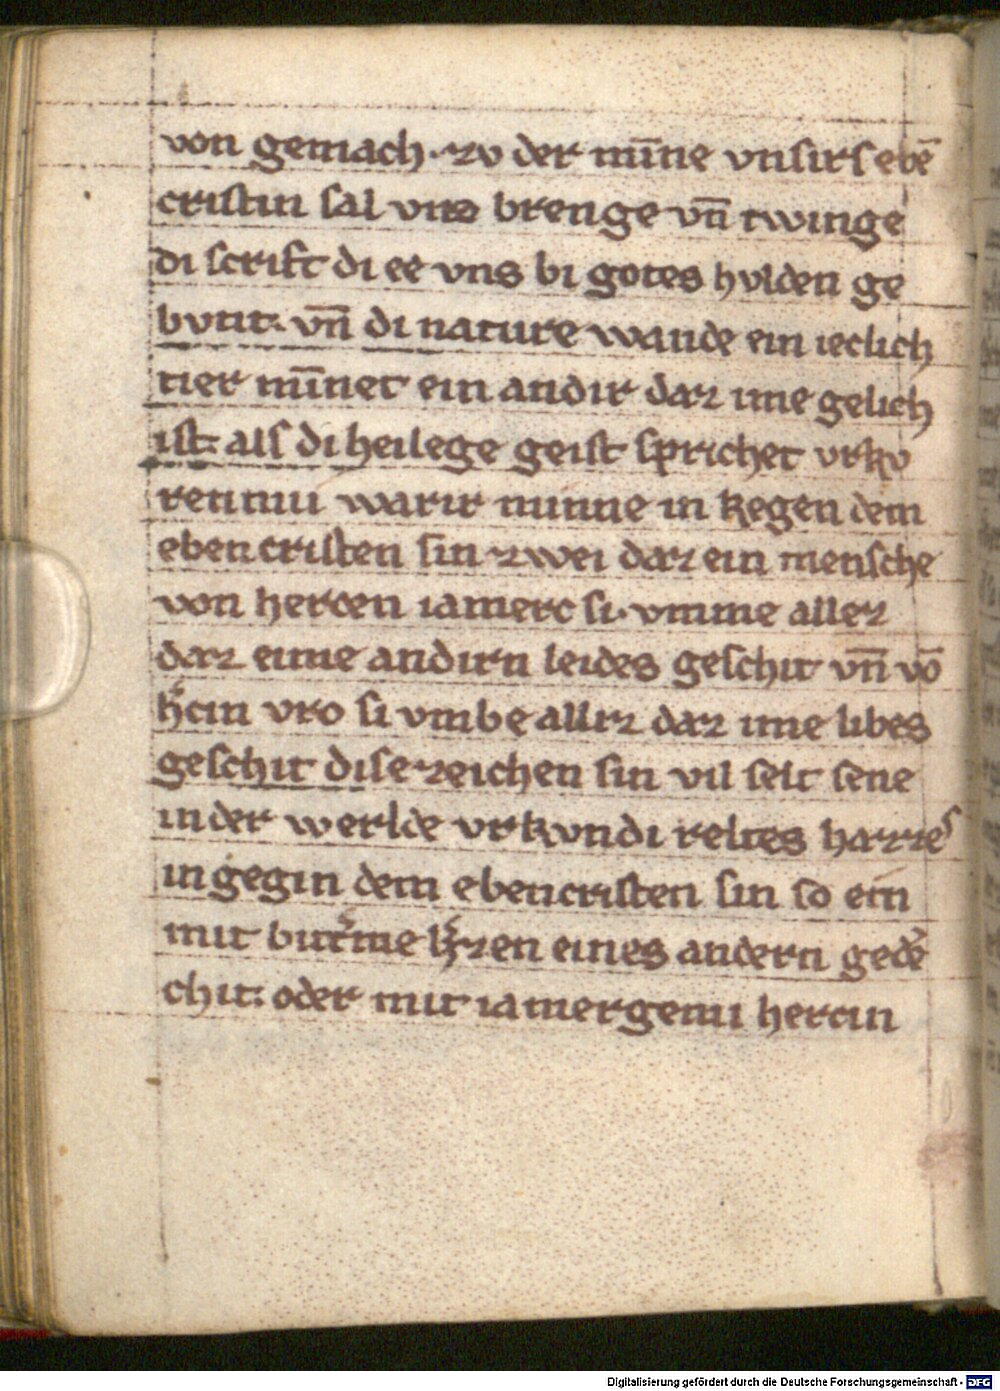 von gemach · zv der mīne vnsirs ebē
cristin sal vns brenge vn̄ twinge
di scrift di ez vns bi gotes hvlden ge
bvtit. vn̄ di nature wande ein ieclich
tier mīnet ein andir daz ime gelich
ist. als di heilege geist sprichet vrkv
ren niu warir minne in kegen dem
ebencristen sin zwei daz ein mensche
von hercen iamerc si · vmme allez
daz eime andirn leides geschit vn̄ vō
h̓cin vro si vmbe alliz daz ime libes
geschit dise zeichen sin vil selt sene
in der werlde vrkvndi rehtes hazzes
in gegin dem ebencristen sin so ein
mit bitt̓me h̓zen eines andern gedē
chit. oder mit iamergemi hercin
Digitalisierung gefördert durch die Deutsche Forschungsgemeinschaft - DFG